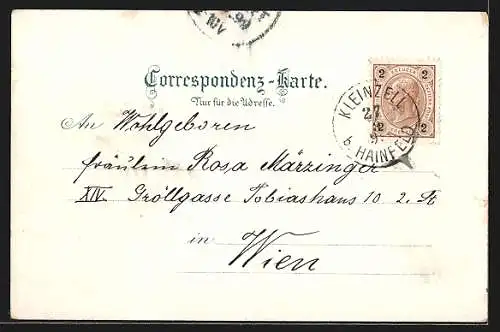 99
10V
Correspondenz-Karte.
Nur für die Adresse.
2 KREUZER 2
2 2
KLEINZELL
27
b. HAINFELD
An Wohlgeboren
fräulein Rosa Märzinger
XIV. Gröllgasse Tobiashaus 10 2. St
in
Wien